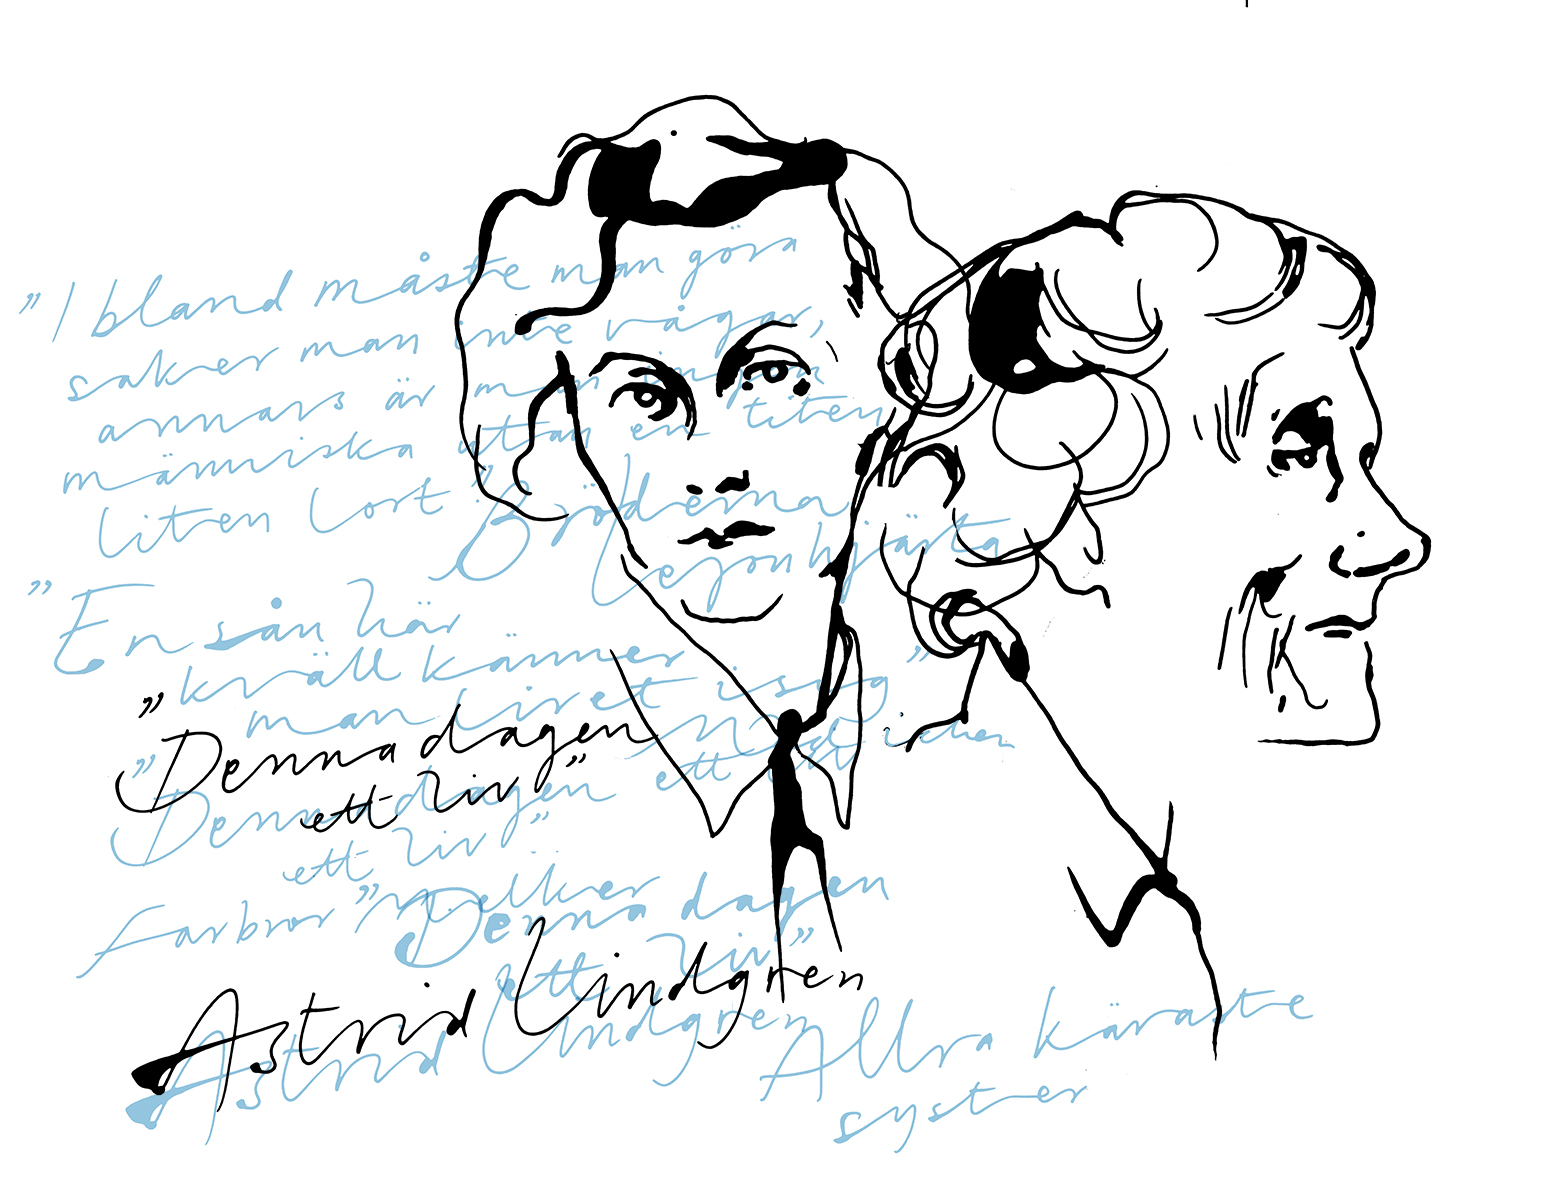 "Ibland måste man göra
saker man inte vågar,
annars är man ingen
människa utan en liten
liten lort"
Bröderna
Lejonhjärta
"En sån här
kväll känner
man livet i sig"
"Denna dagen
ett liv"
"Denna dagen
ett liv"
Farbror Melker
"Denna dagen
ett liv"
Astrid Lindgren
Astrid Lindgren
Allra käraste
syster